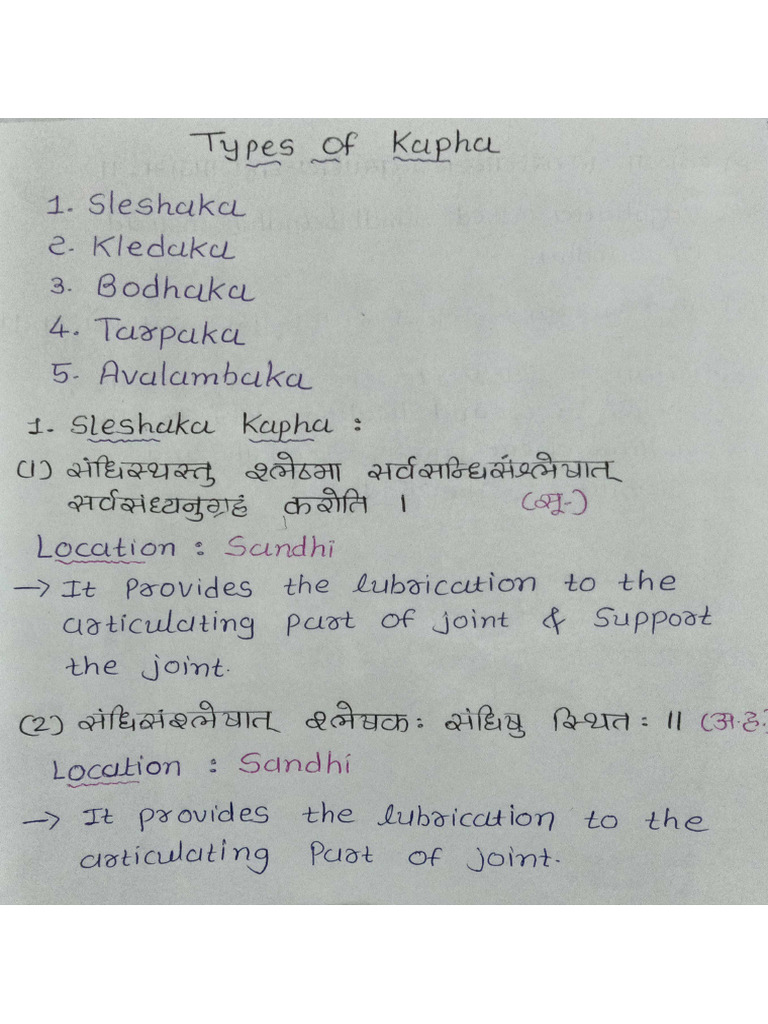 Types of Kapha
1. Sleshaka
2. Kledaka
3. Bodhaka
4. Tarpaka
5. Avalambaka
1. Sleshaka Kapha :
(1) संधिस्थस्तु श्लेष्मा सर्वसन्धिसंश्लेषात्
सर्वसंध्यनुग्रहं करोति ।     (सू-)
Location : Sandhi
→ It Provides the lubrication to the
articulating part of joint & Support
the joint.
(2) संधिसंश्लेषात् श्लेषकः संधिषु स्थितः ॥ (अ.हृ.)
Location : Sandhi
→ It provides the lubrication to the
articulating Part of joint.